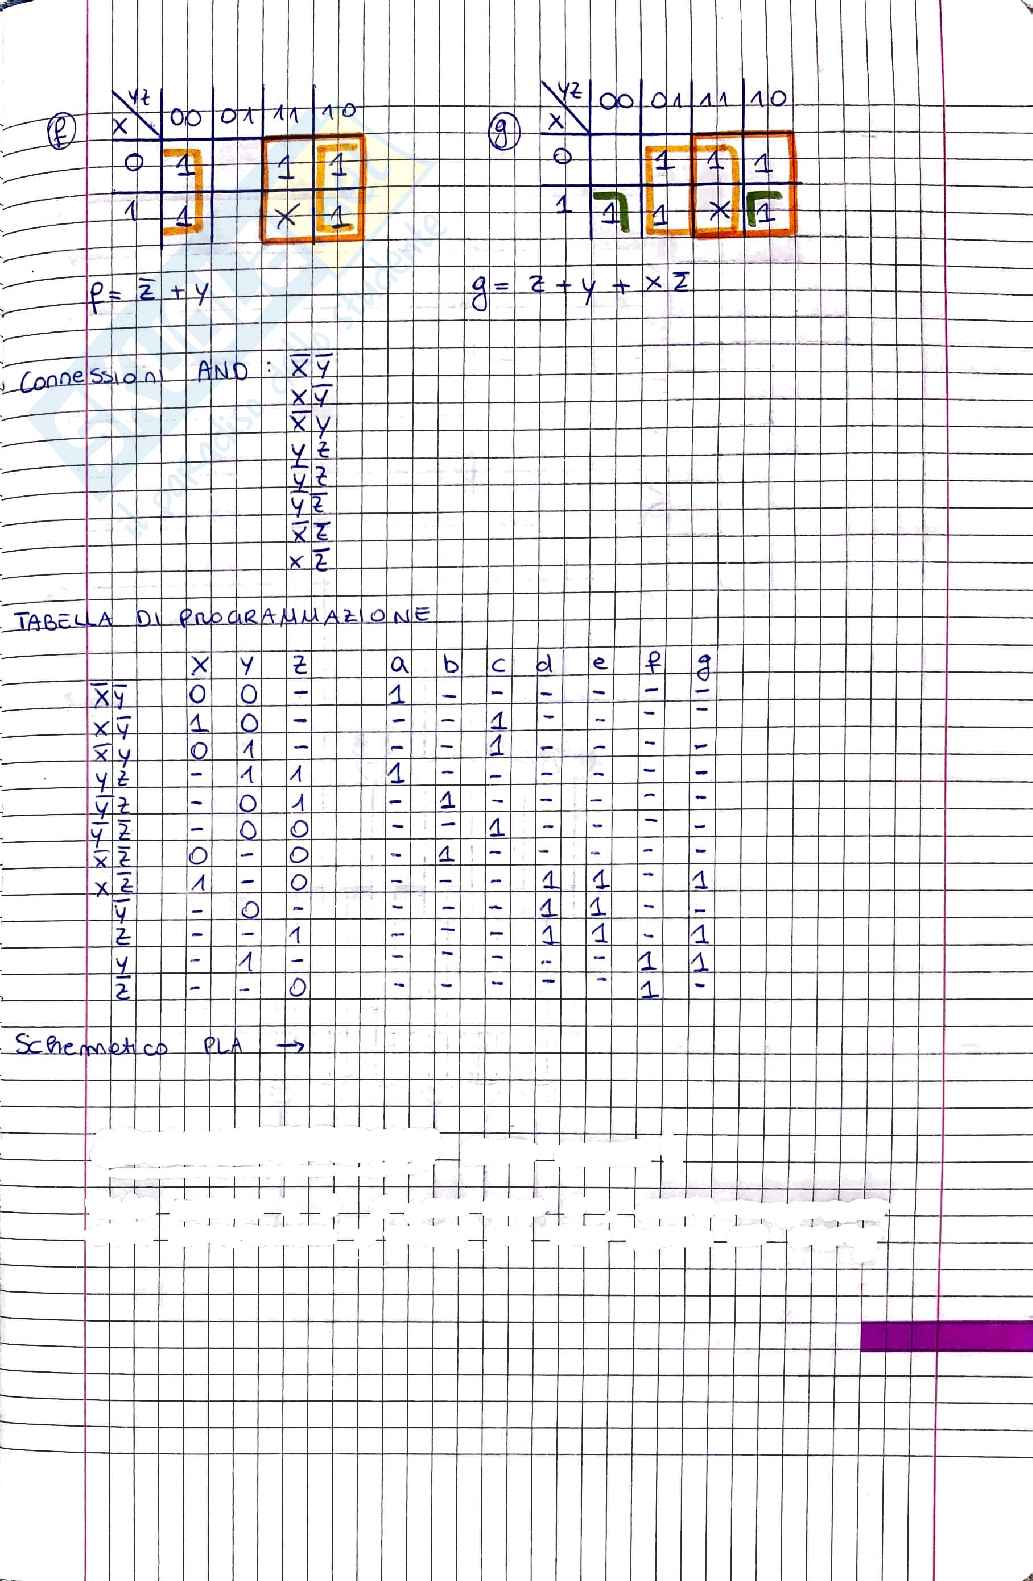 f YZ 00 01 11 10 g YZ 00 01 11 10
X X
0 1 1 1 0 1 1 1
1 1 X 1 1 1 1 X 1
f = z̅ + y g = z + y + x z̅
Connessioni AND : x̅ y̅
x y̅
x̅ y
y z
y̅ z
y̅ z̅
x̅ z̅
x z̅
TABELLA DI PROGRAMMAZIONE
X Y Z a b c d e f g
x̅ y̅ 0 0 - 1 - - - - - -
x y̅ 1 0 - - - 1 - - - -
x̅ y 0 1 - - - 1 - - - -
y z - 1 1 1 - - - - - -
y̅ z - 0 1 - 1 - - - - -
y̅ z̅ - 0 0 - - 1 - - - -
x̅ z̅ 0 - 0 - 1 - - - - -
x z̅ 1 - 0 - - - 1 1 - 1
y̅ - 0 - - - - 1 1 - -
z - - 1 - - - 1 1 - 1
y - 1 - - - - - - 1 1
z̅ - - 0 - - - - - 1 -
Schematico PLA →